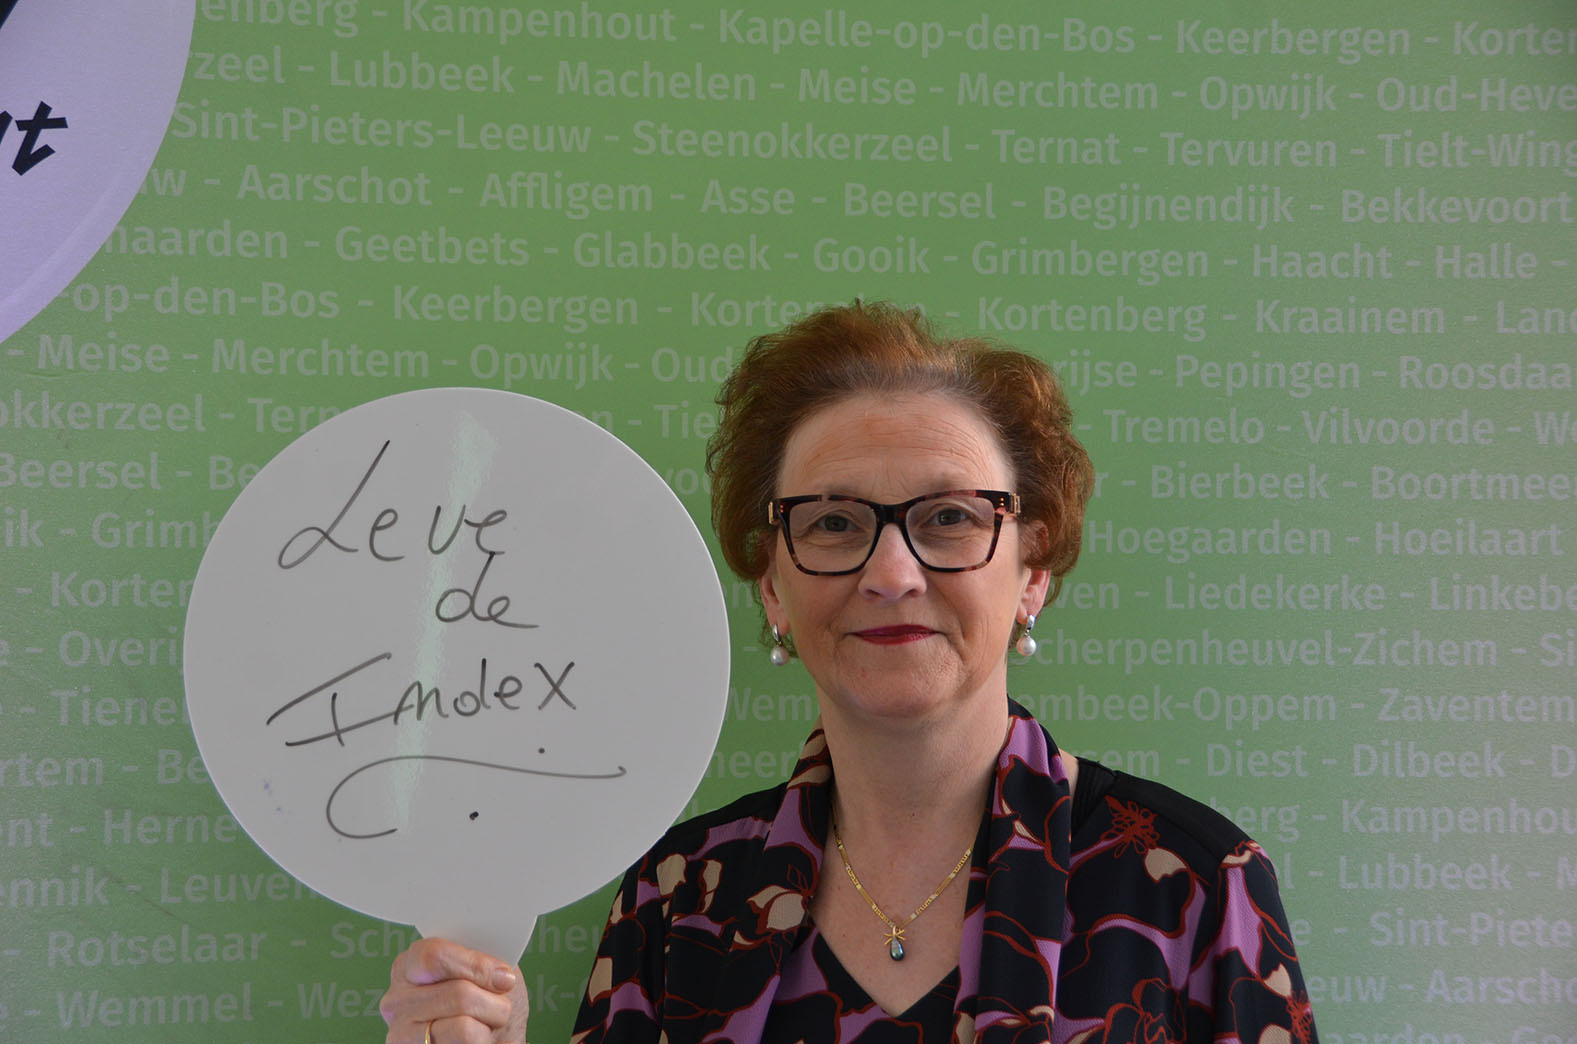 enberg - Kampenhout - Kapelle-op-den-Bos - Keerbergen - Korten
zeel - Lubbeek - Machelen - Meise - Merchtem - Opwijk - Oud-Heve
Sint-Pieters-Leeuw - Steenokkerzeel - Ternat - Tervuren - Tielt-Wing
uw - Aarschot - Affligem - Asse - Beersel - Begijnendijk - Bekkevoort
maarden - Geetbets - Glabbeek - Gooik - Grimbergen - Haacht - Halle -
-op-den-Bos - Keerbergen - Kortenaken - Kortenberg - Kraainem - Land
- Meise - Merchtem - Opwijk - Oud rijse - Pepingen - Roosdaa
okkerzeel - Tern en - Tie Tremelo - Vilvoorde - We
Beersel - Be voo r - Bierbeek - Boortmeer
ik - Grimb Hoegaarden - Hoeilaart
- Korten ven - Liedekerke - Linkebe
e - Overij Scherpenheuvel-Zichem - Si
- Tienen Wem embeek-Oppem - Zaventem
ertem - Be heer sem - Diest - Dilbeek - D
ent - Herne berg - Kampenhou
ennik - Leuven l - Lubbeek - M
- Rotselaar - Sche heu e - Sint-Piete
- Wemmel - Wez k-O euw - Aarscho
aarden - Gee
Leve
de
Index